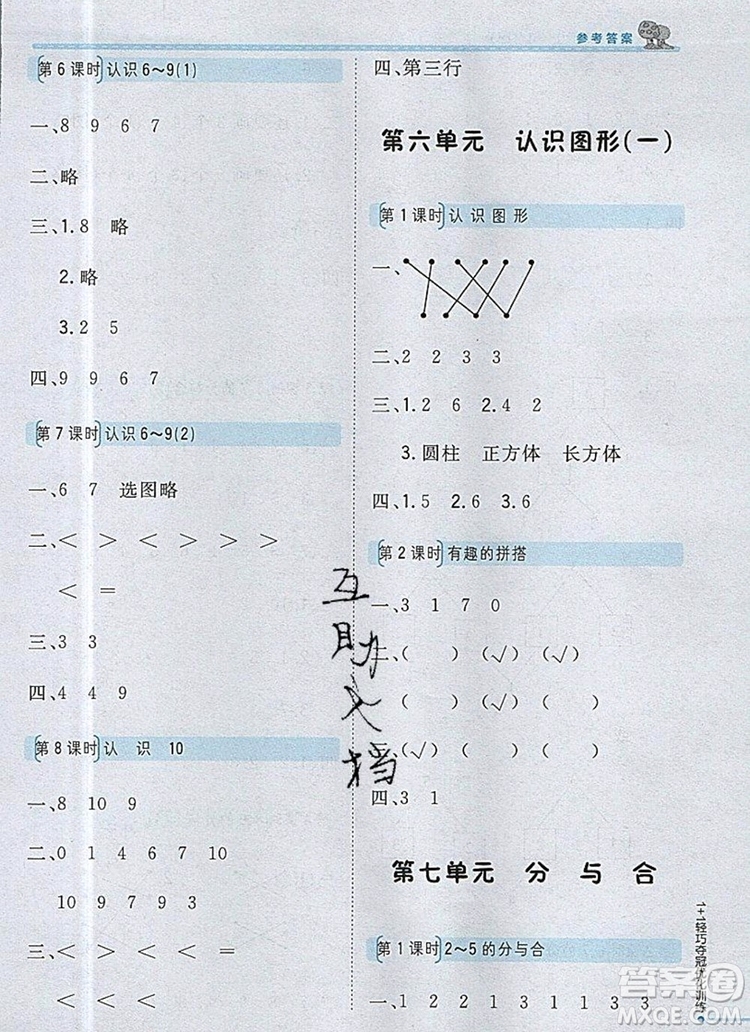 参考答案
第6课时 认识6～9(1)
一、8 9 6 7
二、略
三、1.8 略
2.略
3.2 5
四、9 9 6 7
第7课时 认识6～9(2)
一、6 7 选图略
二、< > < > > >
< = <
三、3 3
四、4 4 9
第8课时 认 识 10
一、8 10 9
二、0 1 4 7 10
10 9 7 9 3
三、< > < <
< < <
四、第三行
第六单元 认识图形(一)
第1课时 认识图形
一、
二、2 2 3 3
三、1.1 2 6 2.4 4 2
3.圆柱 正方体 长方体
四、1.5 2.6 3.6
第2课时 有趣的拼搭
一、3 1 7 0
二、( ) (√) (√)
(√) ( ) (√)
三、(√) ( ) ( ) ( )
四、3 1
第七单元 分 与 合
第1课时 2～5的分与合
一、1 2 2 1 3 1 1 3 3
互助文档
1+1轻巧夺冠优化训练
答案圈
MXQE.COM